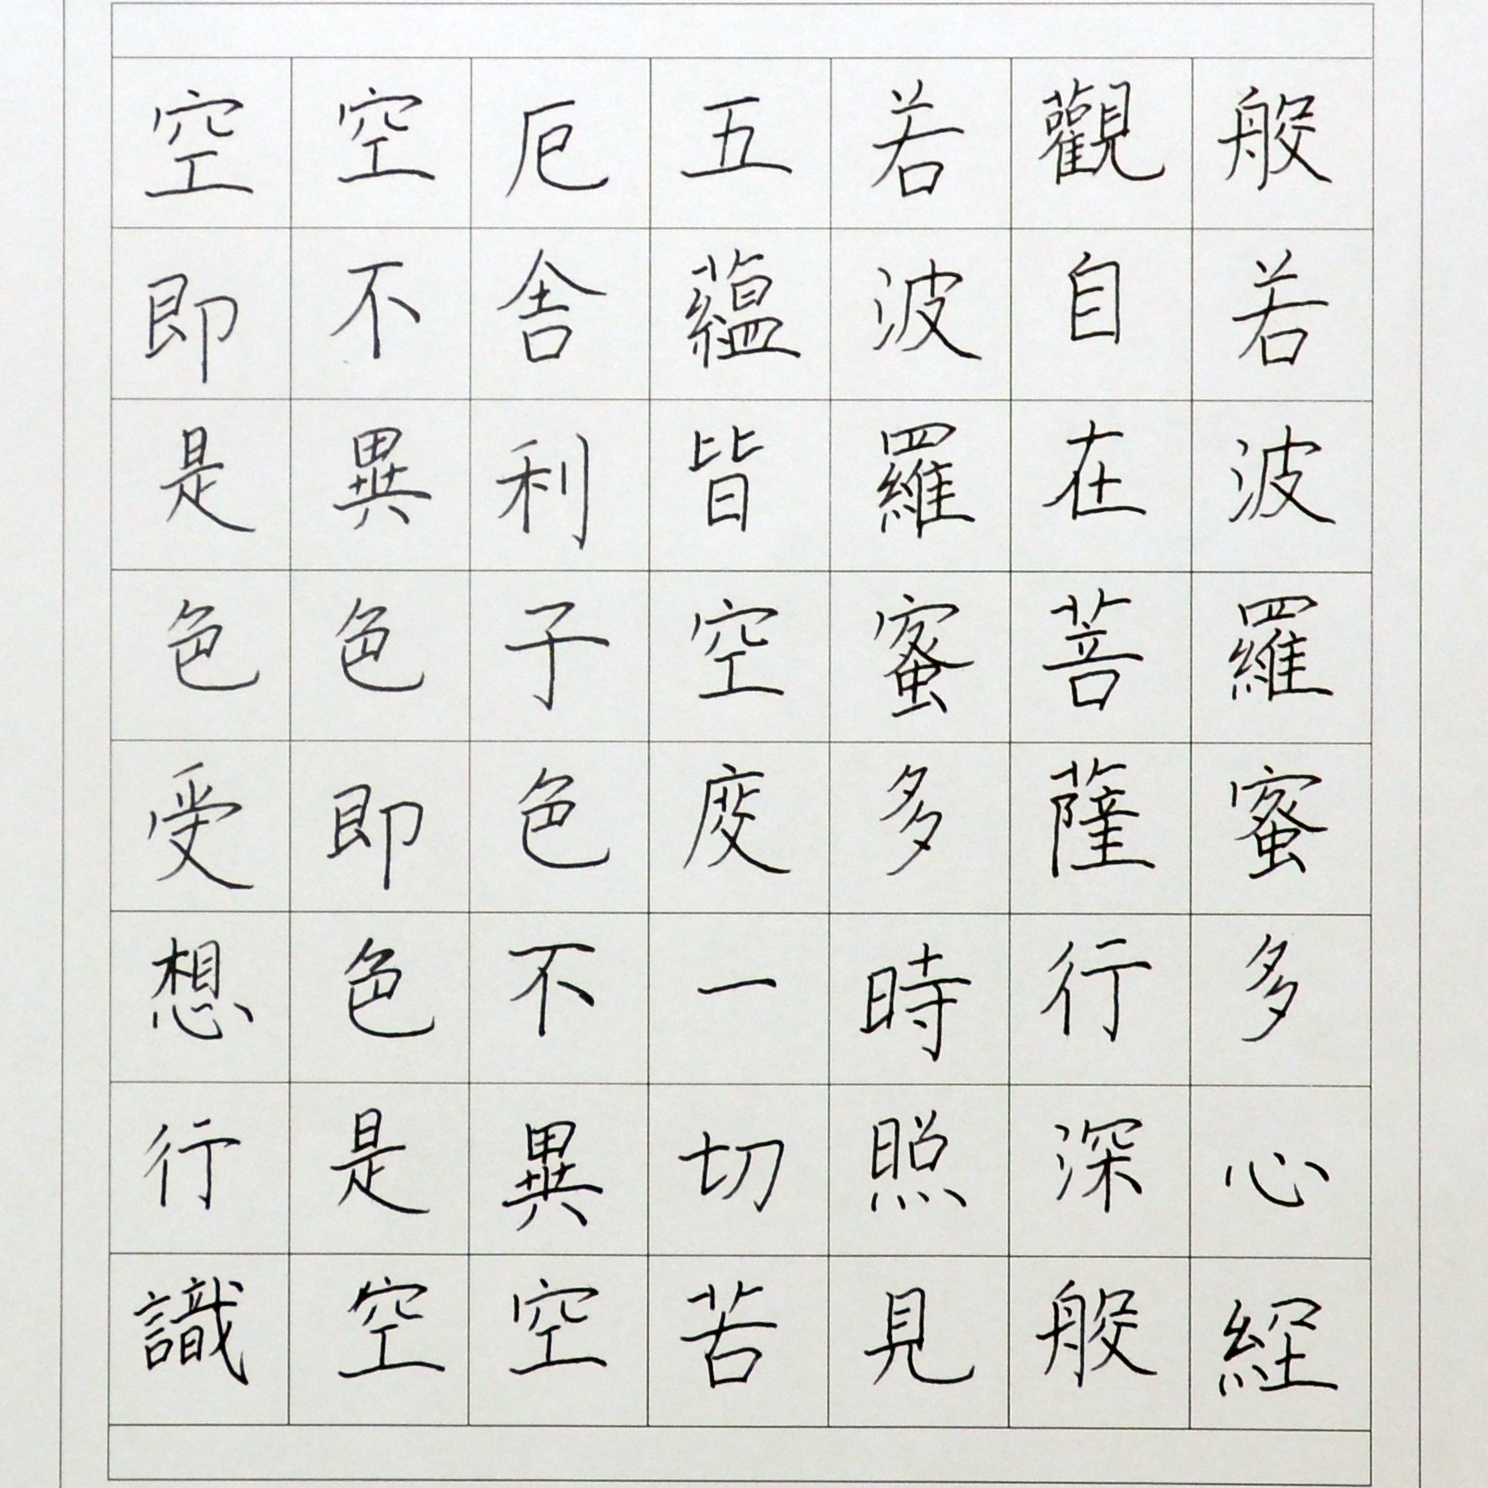 般若波羅蜜多心経
觀自在菩薩行深般
若波羅蜜多時照見
五蘊皆空度一切苦
厄舎利子色不異空
空不異色即色是空
空即是色受想行識